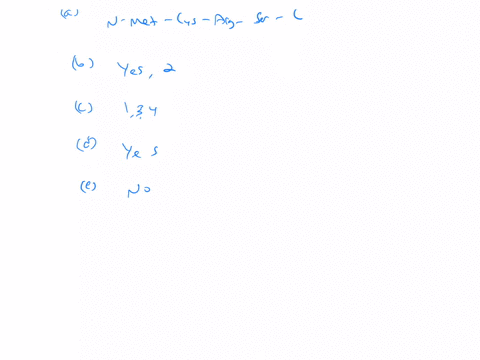 (a) N-Met-Cys-Arg-Ser-C
(b) Yes, 2
(c) 1,3,4
(d) Yes
(e) No